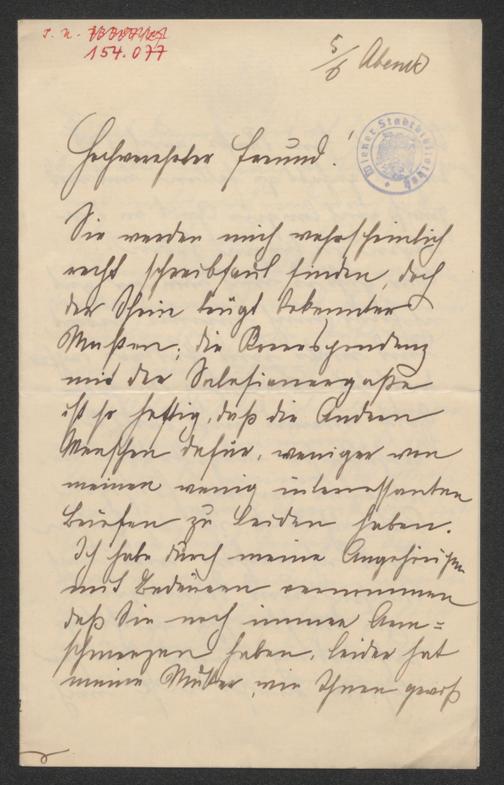 I. N.
154.077
5/6 Abend
Wiener Stadtbibliothek
Hochverehrter Freund!
Sie werden mich wahrscheinlich
recht schreibfaul finden, doch
der Schein trügt bekannter
Maßen; die Correspondenz
mit der Salesianergasse
ist so heftig, daß die Andern
Menschen dafür, weniger von
meinen wenig interessanten
Briefen zu leiden haben.
Ich habe durch meine Angehörigen
mit Bedauern vernommen
daß Sie noch immer Arm=
schmerzen haben, leider hat
meine Mutter, wie Ihnen gewiß